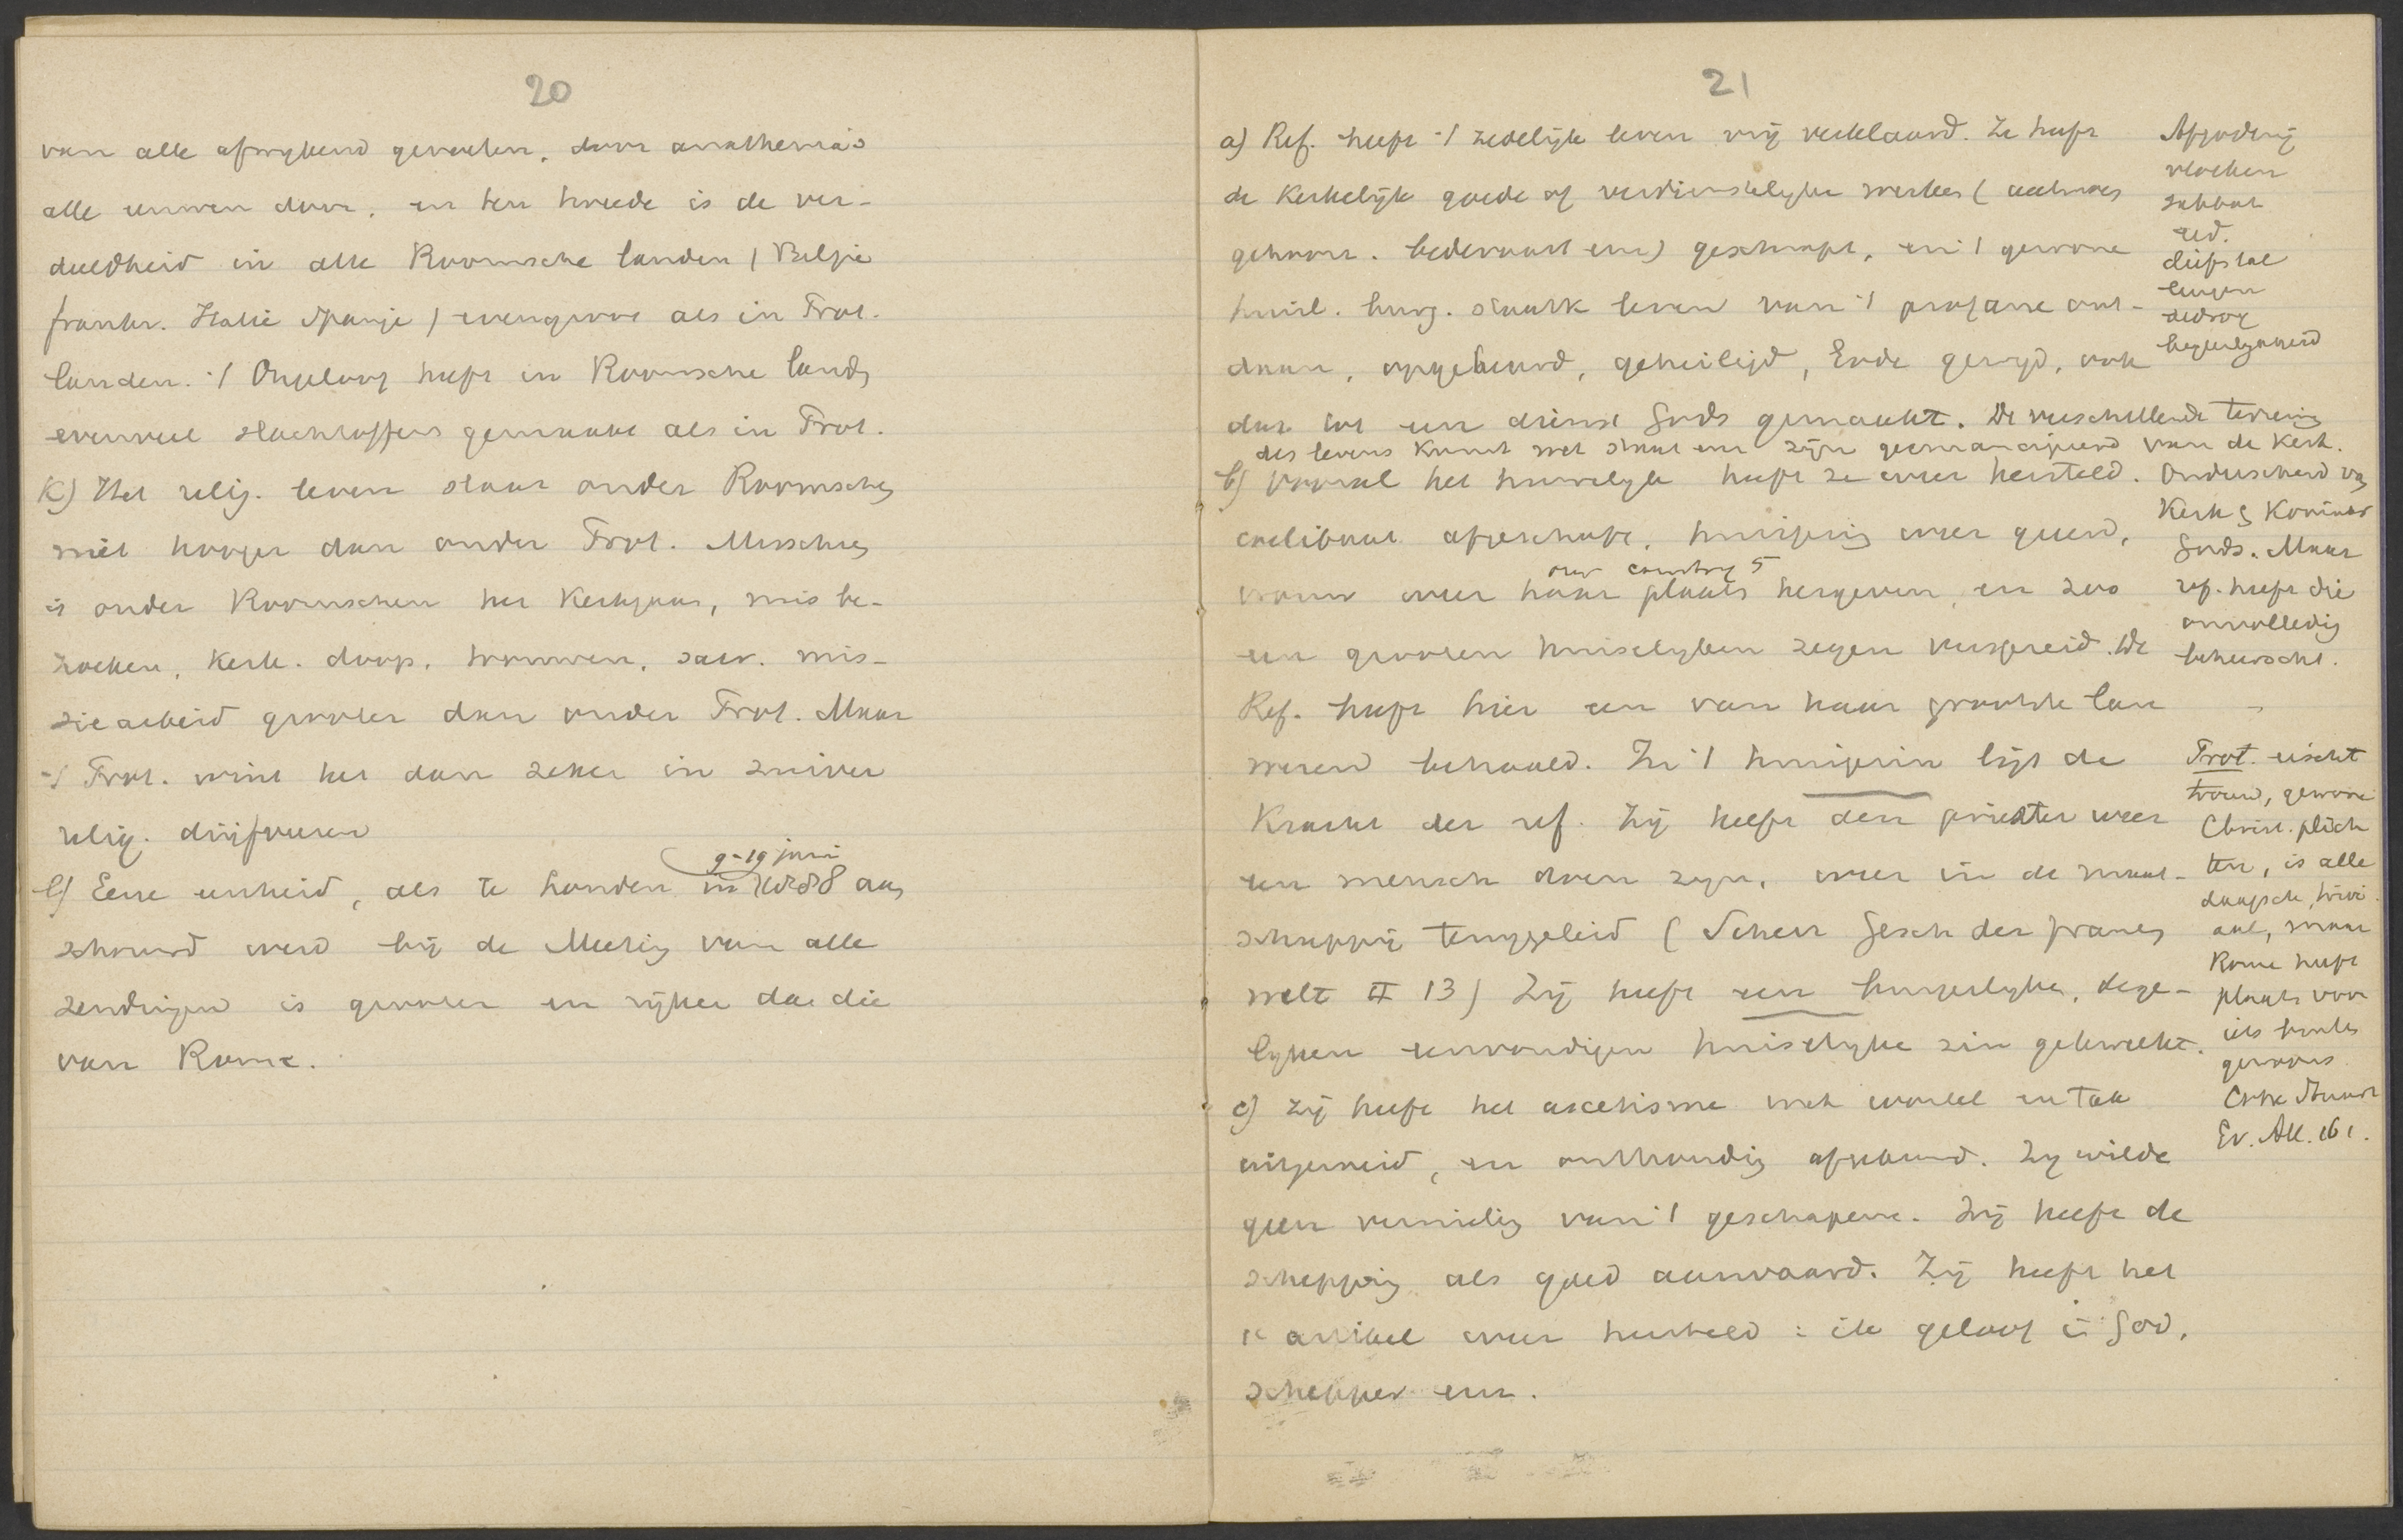 20
van alle afwijkend gevoelen, door anathema's
alle eeuwen door, en ten tweede is de ver-
deeldheid in alle Roomsche landen (Belgie
frankr. Italie Spanje) evengroot als in Prot.
landen. 't Ongeloof heeft in Roomsche landen
evenveel slachtoffers gemaakt als in Prot.
K) Het relig. leven staat onder Roomschen
niet hooger dan onder Prot. Misschien
is onder Roomschen het Kerkgaan, mis be-
zoeken, Kerk. doop, trouwen, sacr. mis-
siearbeid grooter dan onder Prot. Maar
't Prot. wint het dan zeker in zuiver
relig. drijfveeren
9-19 juni
l) Eene eenheid, als te Londen in 1888 aan
schouwd werd bij de Meeting van alle
zendingen is grooter en rijker dan die
van Rome.
21
a) Ref. heeft 't zedelijk leven vrij verklaard. Ze heeft
de Kerkelijk goede of verdienstelijke werken (aalmoes
. bedevaart enz) geschrapt, en 't gewone
huisl. burg. staatk leven van 't profane ont-
daan, opgebeurd, geheiligd, Gode gewijd, ook
dat tot een dienst Gods gemaakt. De verschillende terreinen
des levens Kunst wet staat enz zijn geemancipeerd van de Kerk.
b) Vooral het huwelijk heeft ze weer hersteld.
coelibaat afgeschaft, huisgezin weer geeerd,
our country 5
vrouw weer haar plaats hergeven, en zoo
een grooten huiselyken zegen verspreid. De
Ref. heeft hier een van haar grootste lau
weren behaald. In 't huisgezin ligt de
Kracht der ref. Zij heeft den priester weer
een mensch doen zijn, weer in de maat-
schappij teruggeleid (Scherr Gesch der frauen
welt II 13) Zij heeft een burgerlyken, dege-
lyken eenvoudigen huiselyke zin gekweekt.
c) Zij heeft het ascetisme met wortel en tak
uitgeroeid, en onthouding afgekeurd. Zy wilde
geen vernieling van 't geschapene. Zij heeft de
schepping als goed aanvaard. Zij heeft het
1e artikel weer hersteld: ik geloof in God,
schepper enz.
Afgoderij
vloeken
sabbat
eed.
diefstal
leugen
bedrog
begeerlykheid
Onderscheid van
Kerk en Koninkr
Gods. Maar
ref. heeft die
onvolledig
beheerscht.
Prot. eischt
trouw, gewone
Christ. plich
ten, is alle
daagsch, trivi
aal, maar
Rome heeft
plaats voor
iets buiten
gewoons
Ev. All. 161.